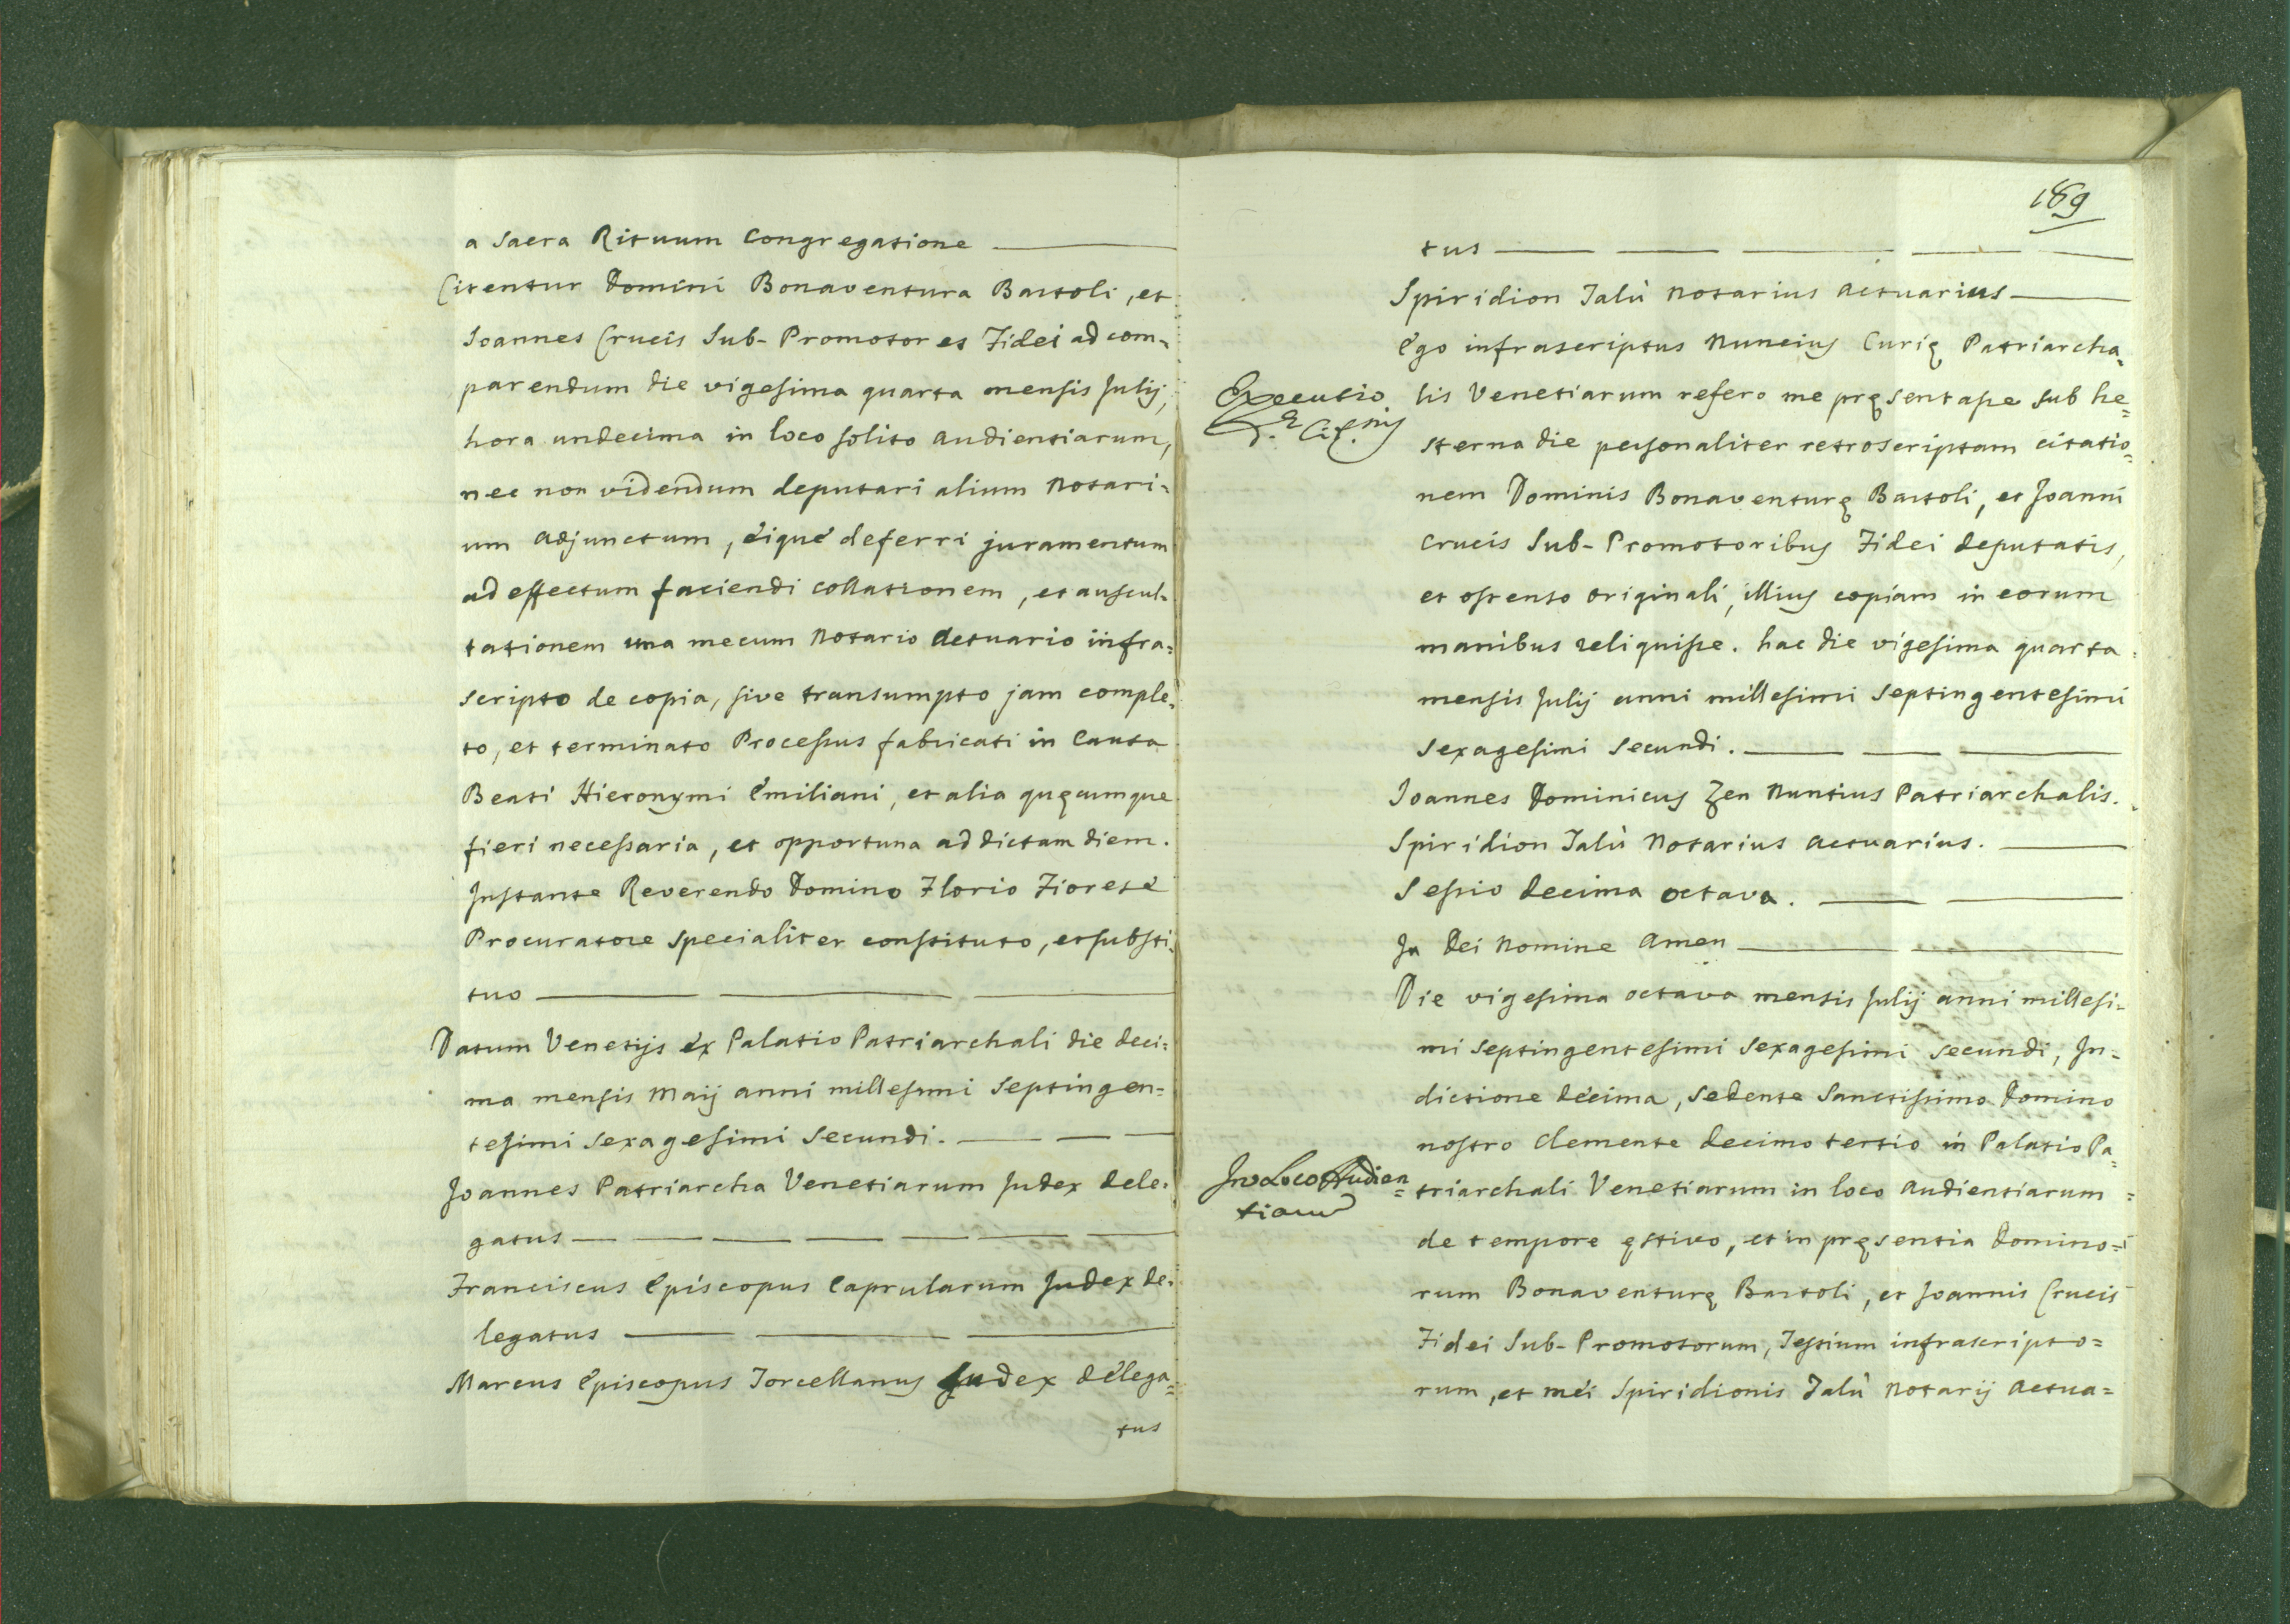 a Sacra Rituum Congregatione
Citentur Domini Bonaventura Bartoli, et
Joannes Crucis Sub-Promotores Fidei ad com-
parendum die vigesima quarta mensis Julij,
hora undecima in loco solito audientiarum,
nec non videndum deputari alium Notari-
um adjunctum, eique deferri juramentum
ad effectum faciendi collationem, et auscul-
tationem una mecum Notario Actuario infra=
scripto de copia, sive transumpto jam comple-
to, et terminato Processus fabricati in Causa
Beati Hieronymi Emiliani, et alia quęcumque
fieri necessaria, et opportuna ad dictam diem.
Instante Reverendo Domino Florio Fiorese
Procuratore specialiter constituto, et substi-
tuo
Datum Venetijs ex Palatio Patriarchali die deci=
ma mensis Maij anni millesimi septingen=
tesimi sexagesimi secundi.
Joannes Patriarcha Venetiarum Judex dele-
gatus
Franciscus Episcopus Caprularum Judex de-
legatus
Marcus Episcopus Torcellanus Judex delega=
tus
189
tus
Spiridion Talù Notarius Actuarius
Ego infrascriptus Nuncius Curię Patriarcha=
Executio
lis Venetiarum refero me pręsentasse sub he=
sterna die personaliter retroscriptam citatio=
nem Dominis Bonaventurę Bartoli, et Joanni
Crucis Sub-Promotoribus Fidei deputatis,
et ostenso originali, illius copiam in eorum
manibus reliquisse. hac die vigesima quarta
mensis Julij anni millesimi septingentesimi
sexagesimi secundi.
Joannes Dominicus Zen Nuntius Patriarchalis.
Spiridion Talù Notarius Actuarius.
Sessio decima octava.
In Dei Nomine Amen
Die vigesima octava mensis Julij anni millesi-
mi septingentesimi sexagesimi secundi, In-
dictione decima, sedente Sanctissimo Domino
nostro Clemente decimo tertio in Palatio Pa=
In Loco Audien=
tiarum
triarchali Venetiarum in loco audientiarum =
de tempore ęstivo, et in pręsentia Domino=
rum Bonaventurę Bartoli, et Joannis Crucis
Fidei Sub-Promotorum, Testium infrascripto=
rum, et mei Spiridionis Talù Notarij Actua=